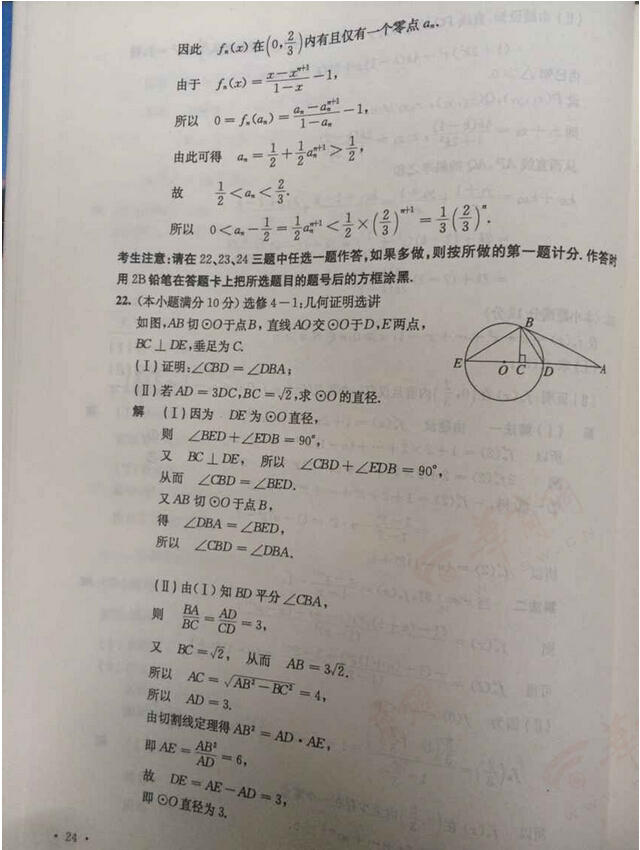 因此 fₙ(x)在(0,2/3)内有且仅有一个零点 aₙ.
由于 fₙ(x)=(x−xⁿ⁺¹)/(1−x)−1,
所以 0=fₙ(aₙ)=(aₙ−aₙⁿ⁺¹)/(1−aₙ)−1,
由此可得 aₙ=1/2+1/2aₙⁿ⁺¹>1/2,
故 1/2<aₙ<2/3.
所以 0<aₙ−1/2=1/2aₙⁿ⁺¹<1/2×(2/3)ⁿ⁺¹=1/3(2/3)ⁿ.
考生注意:请在22、23、24三题中任选一题作答,如果多做,则按所做的第一题计分.作答时
用2B铅笔在答题卡上把所选题目的题号后的方框涂黑.
22.(本小题满分10分)选修4-1:几何证明选讲
如图,AB切⊙O于点B,直线AO交⊙O于D,E两点,
BC⊥DE,垂足为C.
(Ⅰ)证明:∠CBD=∠DBA;
(Ⅱ)若AD=3DC,BC=√2,求⊙O的直径.
B
E O C D A
解 (Ⅰ)因为 DE为⊙O直径,
则 ∠BED+∠EDB=90°,
又 BC⊥DE, 所以 ∠CBD+∠EDB=90°,
从而 ∠CBD=∠BED.
又AB切⊙O于点B,
得 ∠DBA=∠BED,
所以 ∠CBD=∠DBA.
(Ⅱ)由(Ⅰ)知BD平分∠CBA,
则 BA/BC=AD/CD=3,
又 BC=√2, 从而 AB=3√2.
所以 AC=√(AB²−BC²)=4,
所以 AD=3.
由切割线定理得AB²=AD·AE,
即AE=AB²/AD=6,
故 DE=AE−AD=3,
即⊙O直径为3.
·24·